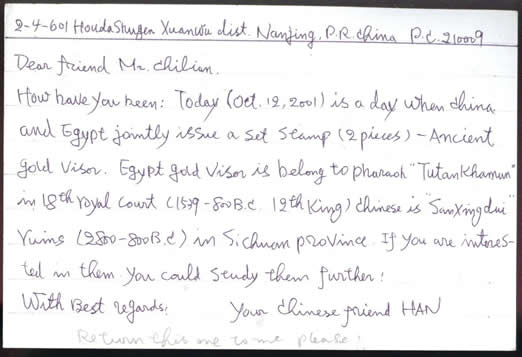 2-4-601 HoudaShugen Xuanwu dist. Nanjing, P.R. China P.C. 210009
Dear friend Mr. Chilian.
How have you been: Today (Oct. 12, 2001) is a day when China
and Egypt jointly issue a set stamp (2 pieces) - Ancient
gold Visor. Egypt gold Visor is belong to pharaoh "Tutankhamun"
in 18th royal court (1539-800B.C. 12th King) Chinese is "SanXingdui"
ruins (2800-800B.C) in Sichuan province. If you are interes-
ted in them you could study them further!
With Best regards! Your Chinese friend HAN
Return this one to me please!